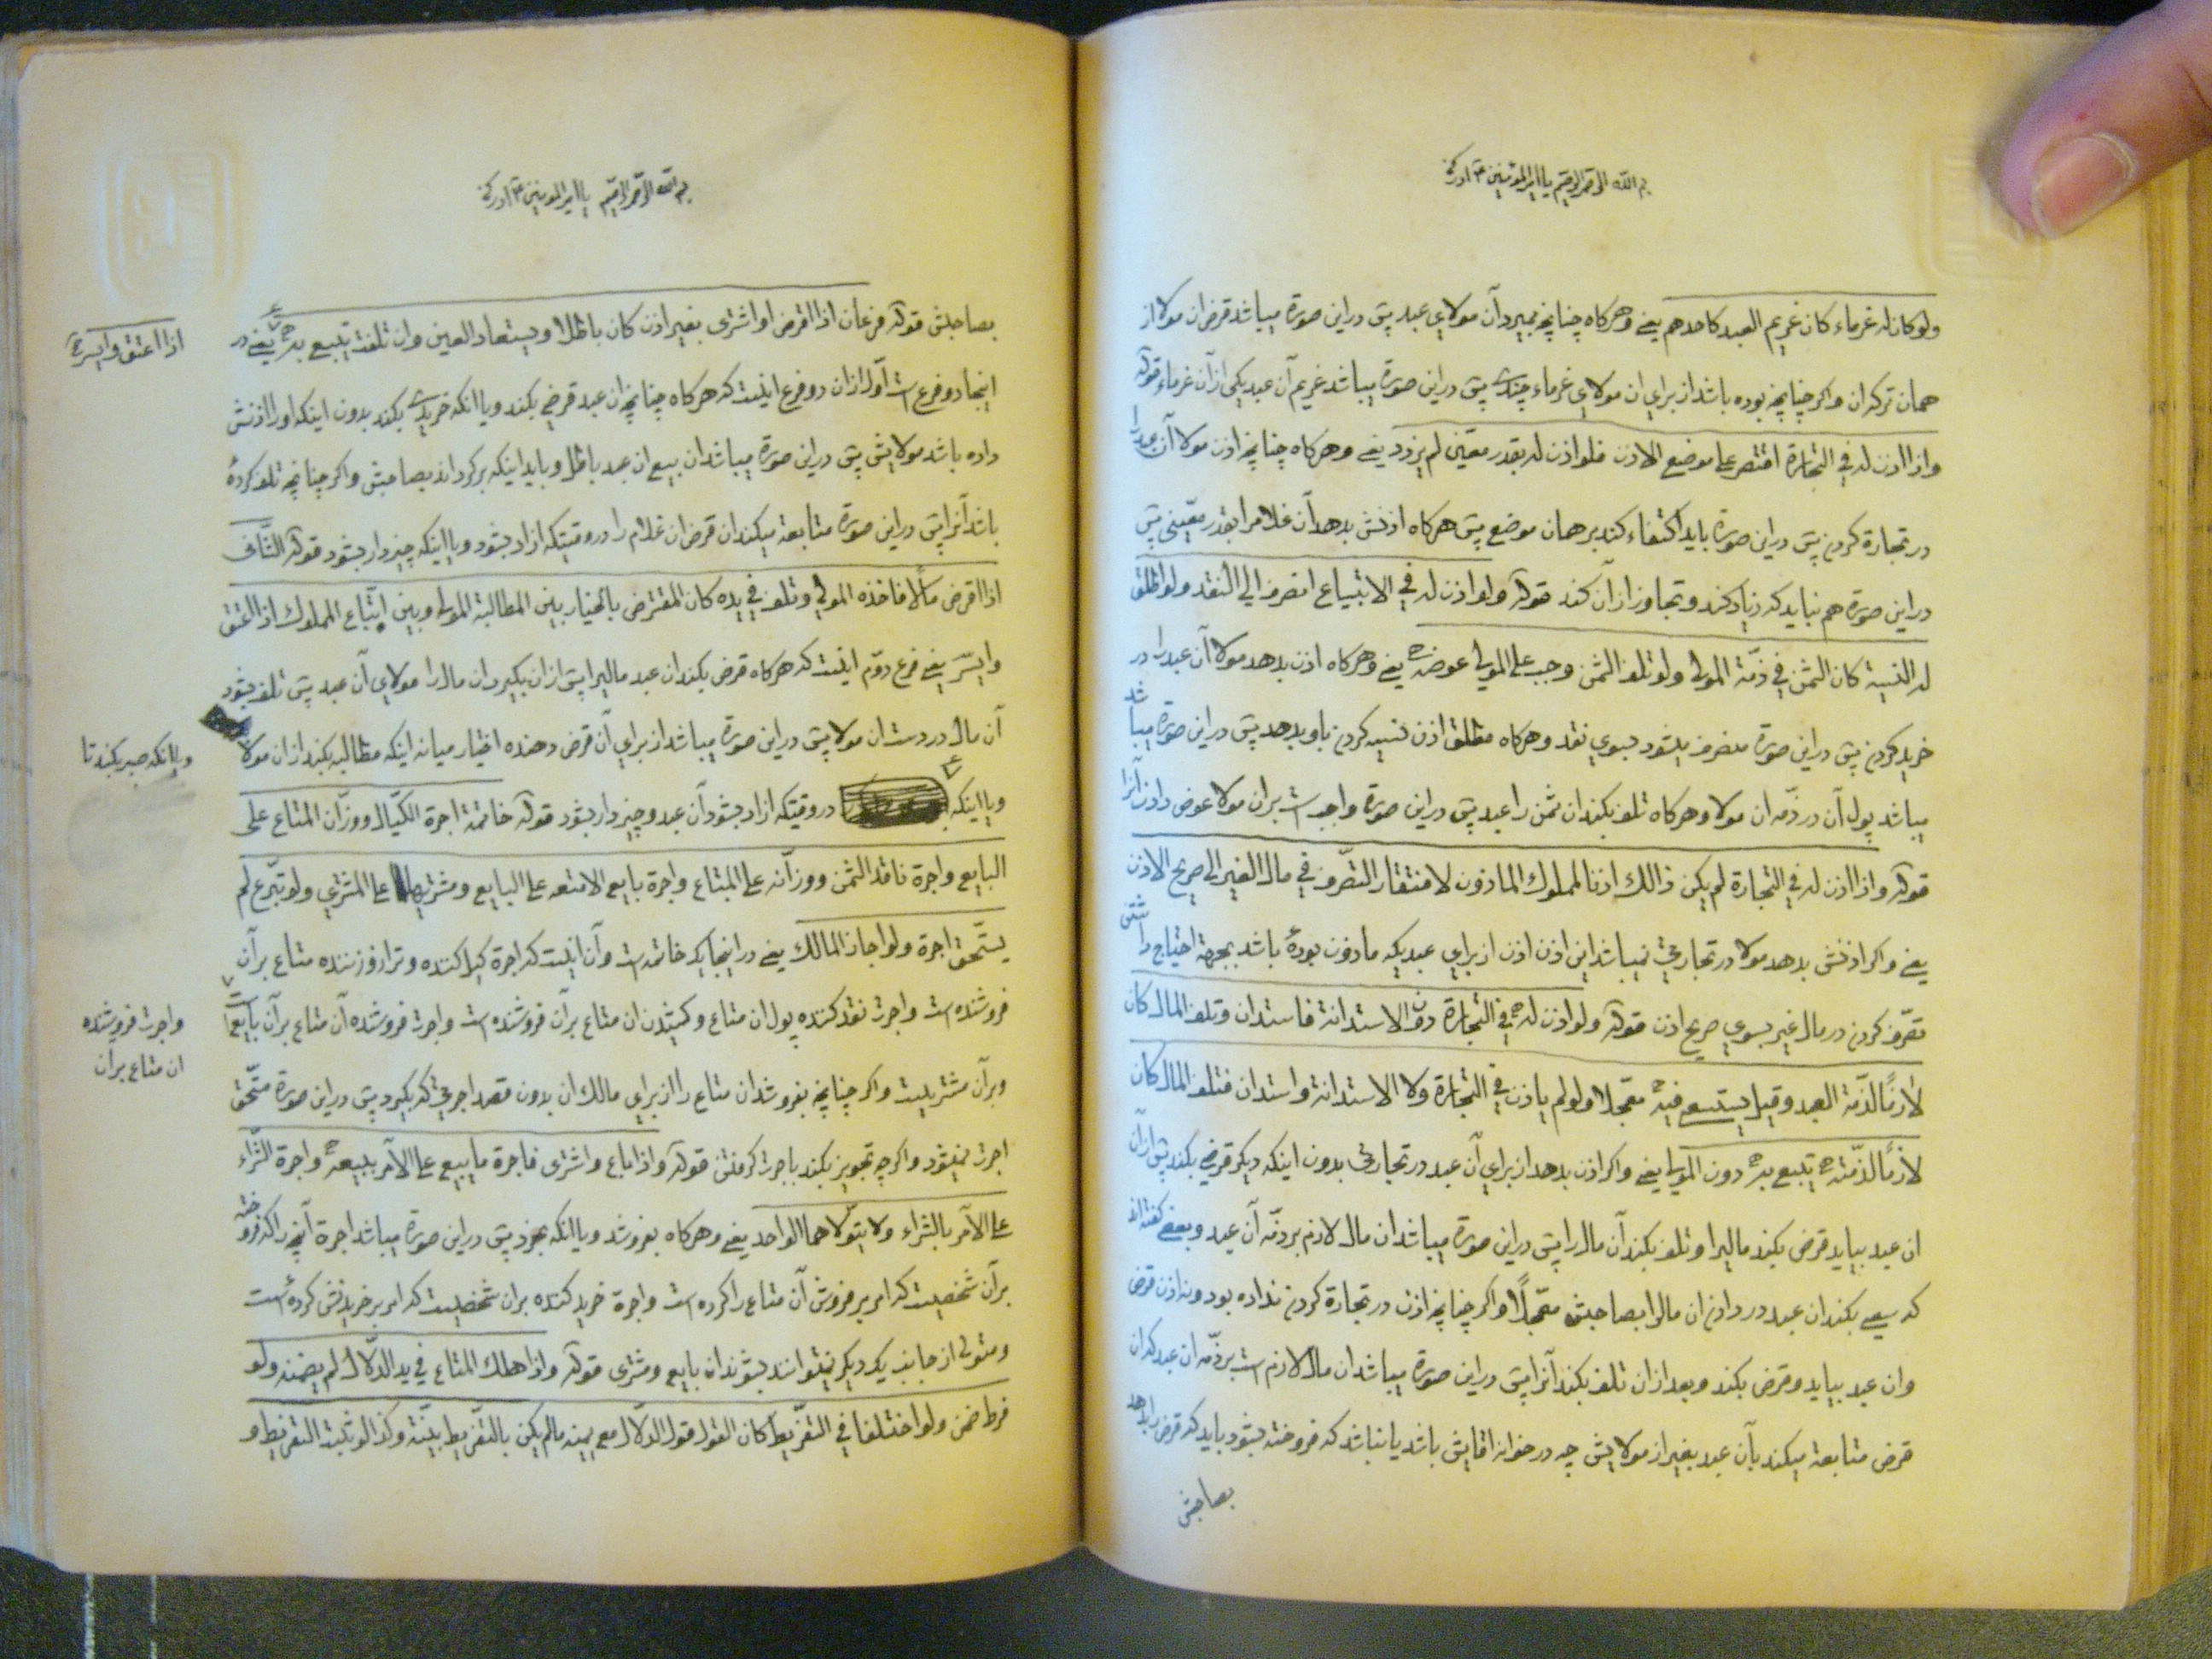 بسم الله الرحمن الرحیم یا امیر المؤمنین ع ادرکنی
ولو کان له غرماء کان غریم العبد کاحدهم یعنی و هرکاه چنانچه بمیرد آن مولای عبد پس دراین صورة میباشد قرض ان مولا از
همان ترکه ان و اکر چنانچه بوده باشد از برای ان مولای غرماء چندی پس دراین صورة میباشد غریم آن عبد یکی از آن غرماء قوله
واذا اذن له في التجارة اقتصر علی موضع الاذن فلو اذن له بقدر معین لم یزد یعنی و هرکاه چنانچه اذن مولا آن عبد را
در تجارة کردن پس دراین صورة باید اکتفاء کند بر همان موضع پس هرکاه اذنش بدهد آن غلام را بقدر معینی پس
دراین صورة هم نباید که زیاد کند و تجاوز از آن کند قوله ولو اذن له في الابتیاع انصرف الی النقد ولو اطلق
له النسیة کان الثمن في ذمة المولی ولو تلف الثمن وجب علی المولی عوضه یعنی و هرکاه اذن بدهد مولا آن عبد را در
خرید کردن پس دراین صورة منصرف میشود بسوی نقد و هرکاه مطلق اذن نسیه کردن باو بدهد پس دراین صورة میباشد
میباشد پول آن در ذمه ان مولا و هرکاه تلف بکند ان ثمن را عبد پس دراین صورة واجب است بران مولا عوض دادن آنرا
قوله واذا اذن له في التجارة لم یکن ذالک اذنا لمملوک الماذون لافتقار التصرف في مال الغیر الی صریح الاذن
یعنی واکر اذنش بدهد مولا در تجارتی نمیباشد این اذن اذن از برای عبدیکه ماذون بوده باشد بجهة احتیاج داشتن
تصرف کردن در مال غیر بسوی صریح اذن قوله ولو اذن له في التجارة دون الاستدانة فاستدان وتلف المال کان
لازما لذمة العبد وقیل یستسعی فیه معجلا ولو لم یاذن في التجارة ولا الاستدانة واستدان فتلف المال کان
لازما لذمته یتبع به دون المولی یعنی واکر اذن بدهد از برای آن عبد در تجارتی بدون اینکه دیکر قرضی بکند پس از آن
ان عبد بیاید قرض بکند مالیرا و تلف بکند آن مال را پس دراین صورة میباشد ان مال لازم بر ذمه آن عبد و بعضی گفته اند
که سعی بکند ان عبد در دادن ان مال را بصاحبش معجلا و اکر چنانچه اذن در تجارة کردن نداده بود و نه اذن قرض
وان عبد بیاید و قرض بکند و بعد از ان تلف بکند آنرا پس دراین صورة میباشد ان مال لازم است بر ذمه ان عبد که ان
قرض متابعة میکند بآن عبد بغیر از مولایش چه در خوانه اقایش باشد یا نباشد که فروخته بشود باید که قرض را بدهد
بصاحبش
بسم الله الرحمن الرحیم یا امیر المؤمنین ع ادرکنی
بصاحبش قوله فرعان اذا اقرض او اشتری بغیر اذن کان باطلا ویستعاد العین وان تلفت یتبع به یعنی در
اذا اعتق وایسر
اینجا دو فرع است اول ازان دو فرع اینست که هرکاه چنانچه ان عبد قرضی بکند و یا انکه خریدی بکند بدون اینکه اورا اذنش
داده باشد مولایش پس دراین صورة میباشد ان بیع ان عبد باطل و باید اینکه برکرداند بصاحبش و اکر چنانچه تلف کرده
باشد آنرا پس دراین صورة متابعة میکند ان قرض ان غلام را در وقتیکه ازاد بشود و یا اینکه چیزدار بشود قوله الثانی
اذا اقرض مالا فاخذه المولی وتلف في یده کان المقترض بالخیار بین المطالبة المولی وبین اتباع المملوک اذا اعتق
وایسر یعنی فرع دوم اینست که هرکاه قرض بکند ان عبد مالیرا پس ازان بکیرد ان مال را مولای آن عبد پس تلف بشود
آن مال در دست ان مولا پس دراین صورة میباشد از برای آن قرض دهنده اختیار میانه اینکه مطالبه بکند از ان مولا
و یا انکه صبر بکند تا
و یا اینکه در وقتیکه ازاد بشود آن عبد و چیزدار بشود قوله خاتمة اجرة الکیال ووزان المتاع علی
البایع واجرة ناقد الثمن ووزانه علی المبتاع واجرة بایع الامتعه علی البایع ومشتریها علی المشتری ولو تبرع لم
یستحق اجرة ولو اجاز المالک یعنی در اینجا یک خاتمه است وآن اینست که اجرة کیل کننده و ترازو زننده متاع برآن
فروشنده است و اجرت نقد کننده پول ان متاع و کشیدن ان متاع برآن فروشنده است و اجرت فروشنده آن متاع برآن بایع است
واجرت فروشنده
ان متاع بران
و برآن مشتریست و اکر چنانچه بفروشد ان متاع را از برای مالک ان بدون قصد اجرتی که بکیرد پس دراین صورة مستحق
اجرت نمیشود و اکر چه تجویز بکند باجرت کرفتن قوله واذا باع واشتری فاجرة ما یبیع علی الآمر ببیعه واجرة الشراء
علی الآمر بالشراء ولا یتولاهما الواحد یعنی و هرکاه بفروشد و یا انکه بخرد پس دراین صورة میباشد اجرة آنچه را که فروخته
برآن شخصیست که امر بر فروش آن متاع را کرده است و اجرة خرید کننده بران شخصیست که امر بر خریدنش کرده است
و متولی از جانب یکدیکر نمیتوانند بشوند ان بایع و مشتری قوله واذا هلک المتاع في ید الدلال لم یضمنه ولو
فرط ضمن ولو اختلفا في التفریط کان القول قول الدلال مع یمینه مالم یکن بالتفریط بینة وکذا لو ثبت التفریط و